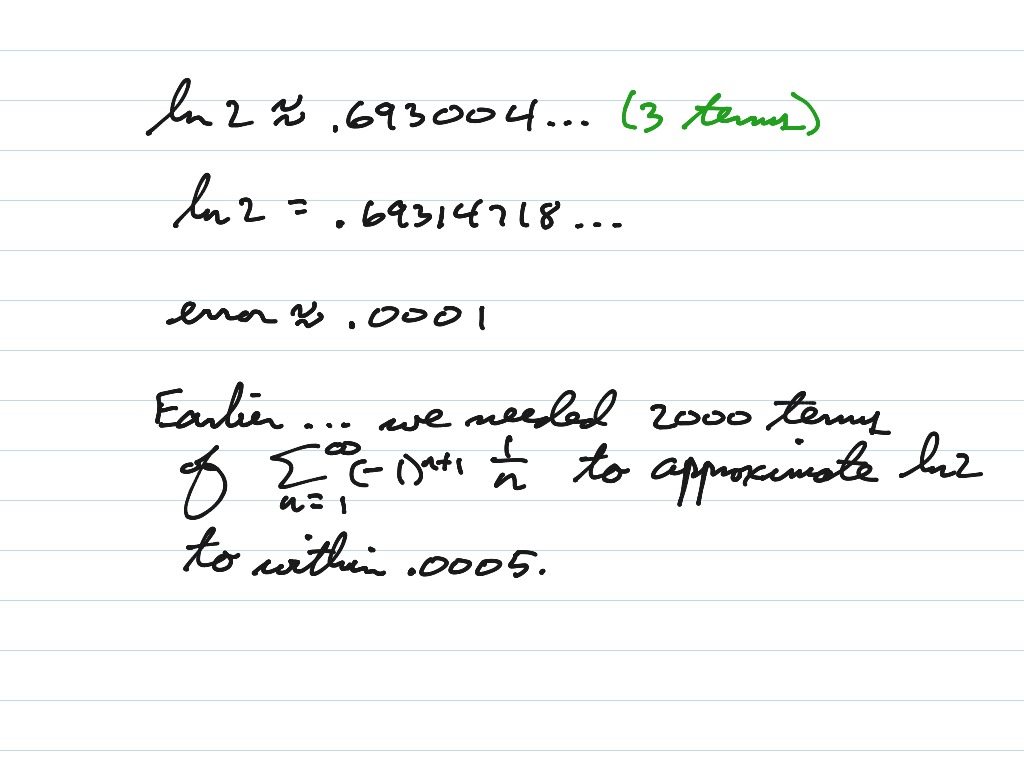 ln 2 ≈ .693004... (3 terms)
ln 2 = .69314718...
error ≈ .0001
Earlier ... we needed 2000 terms
of ∑_{n=1}^{∞} (-1)^{n+1} 1/n to approximate ln 2
to within .0005.